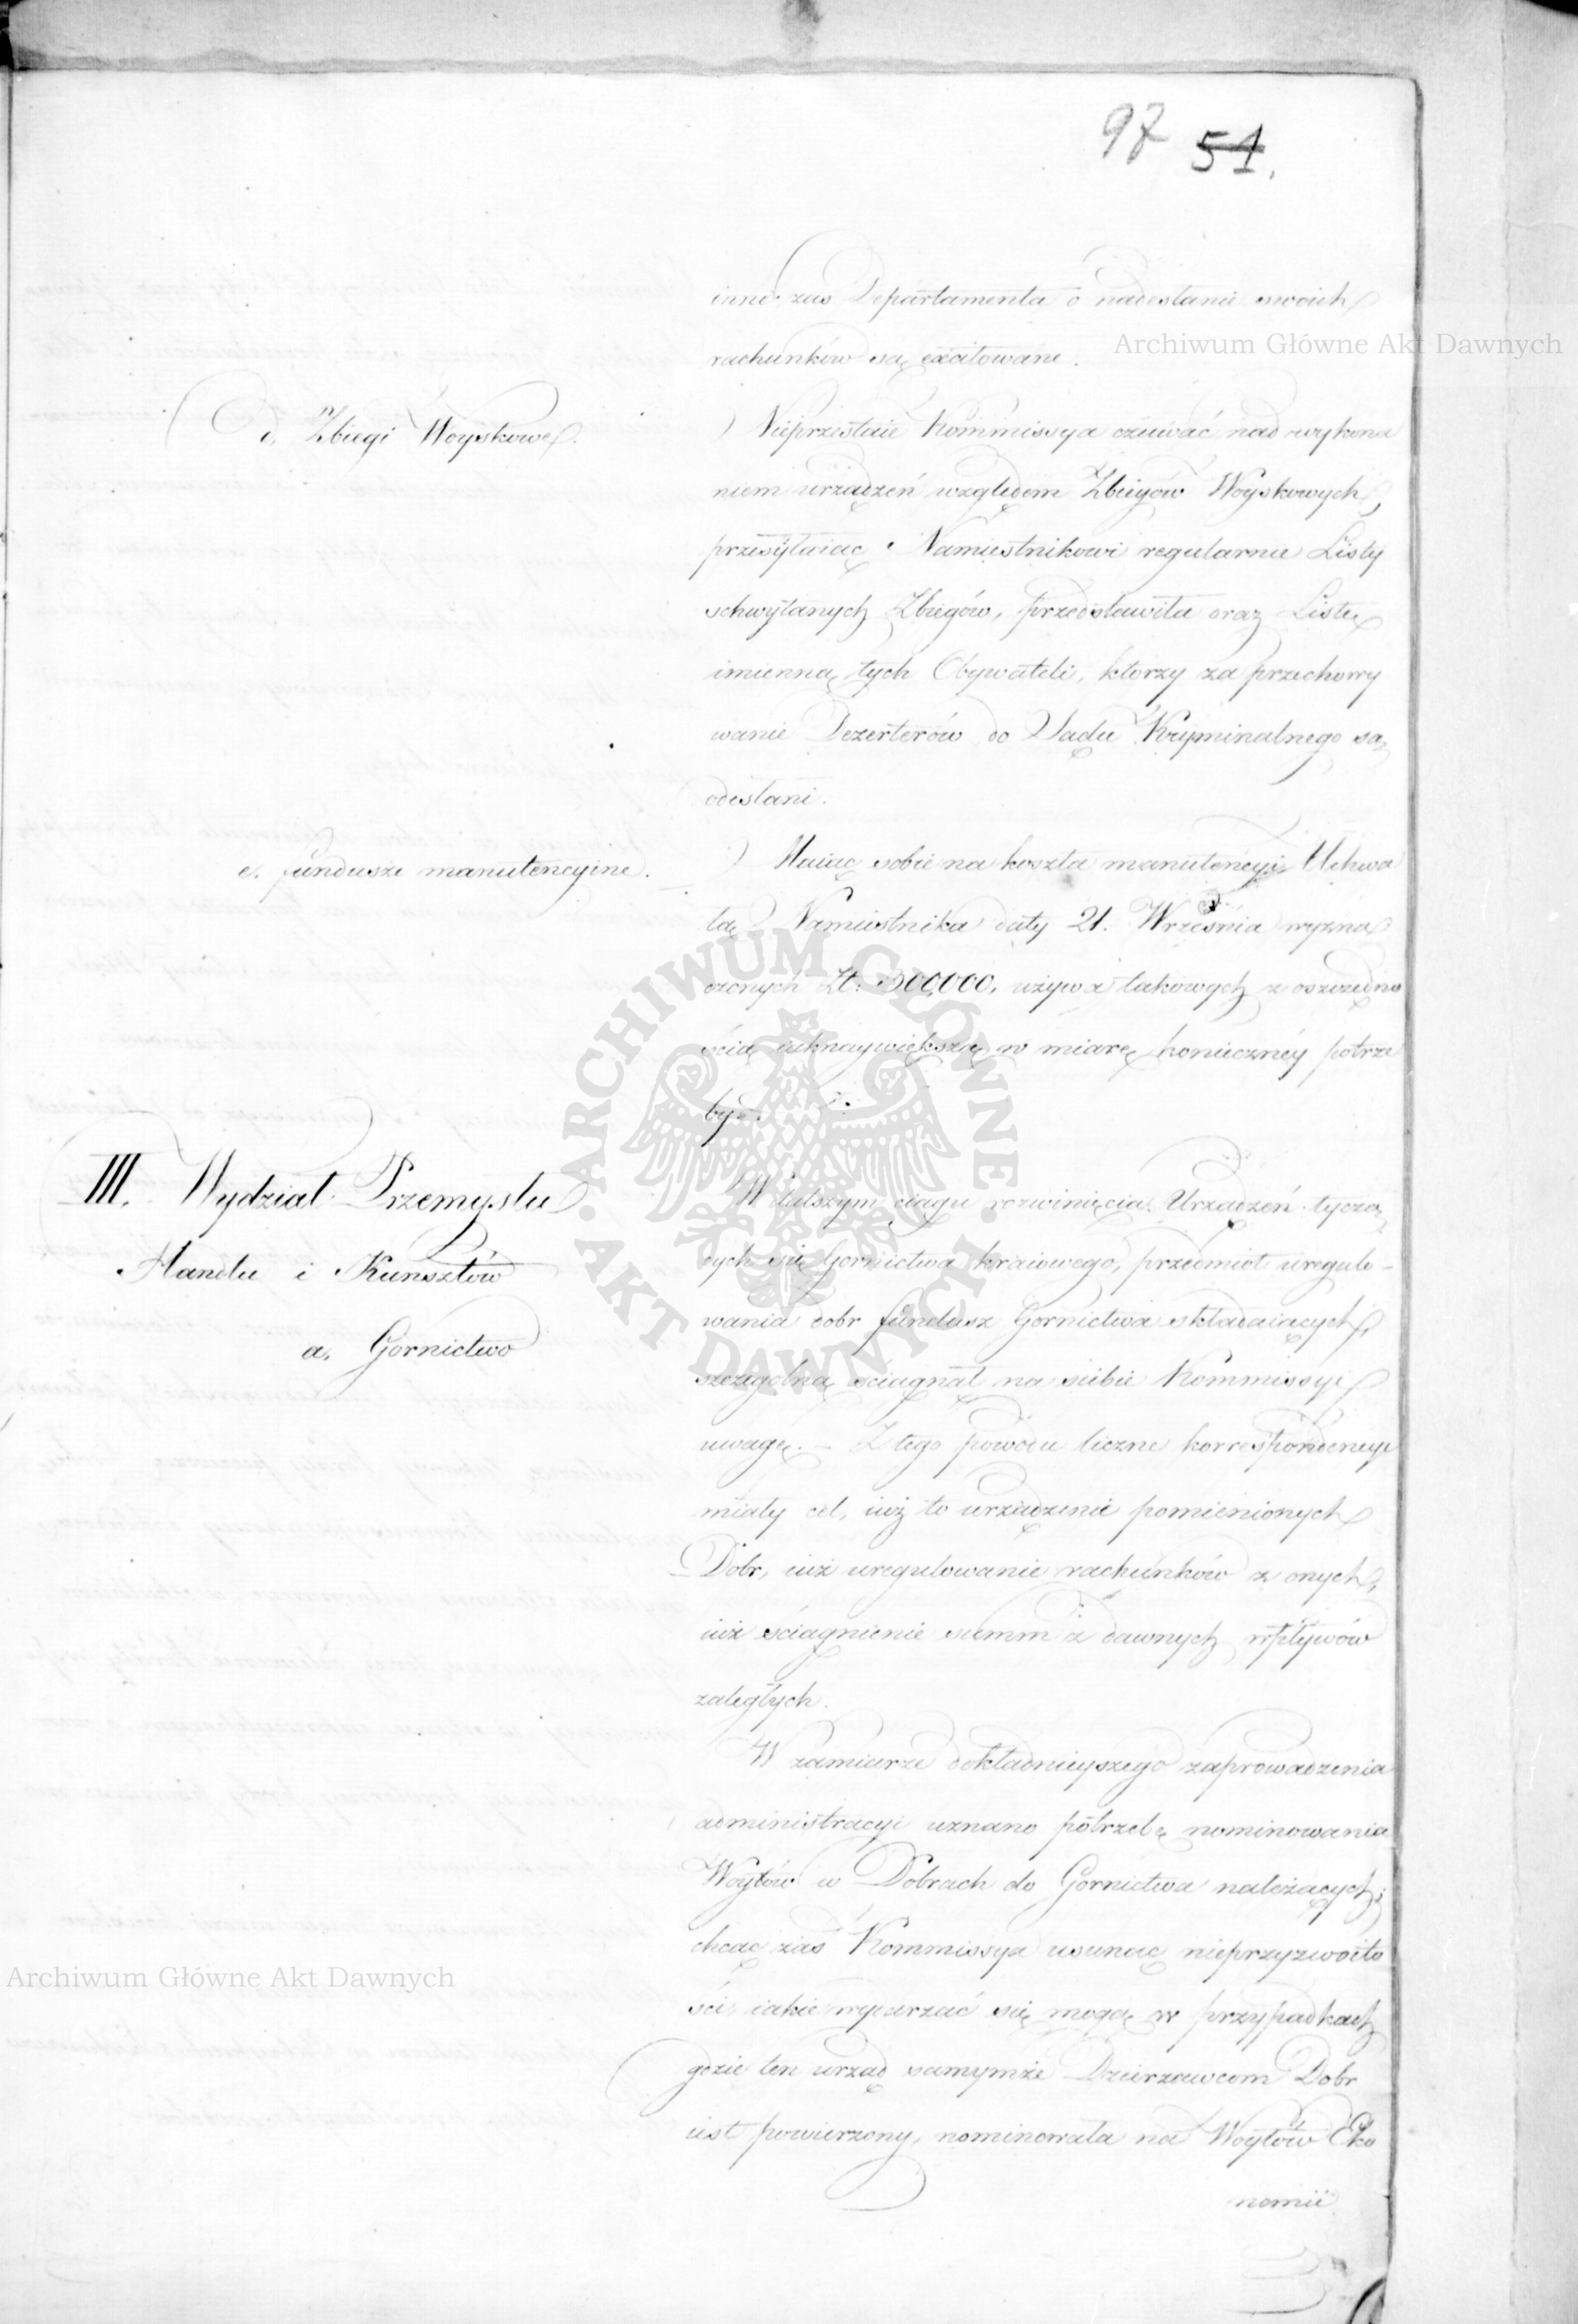 97 51.
inne zaś Departamenta o nadesłanie swoich
rachunków są excitowane.
d. Zbiegi Woyskowe.
Nieprzestaie Kommissya czuwać nad wykona
niem urządzeń względem Zbiegów Woyskowych,
przesyłaiąc Namiestnikowi regularnie Listy
schwytanych Zbiegów, przedstawiła oraz Listę
imienną tych Obywateli, ktorzy za przechowy
wanie Dezerterów do Sądu Kryminalnego są
odesłani.
e. fundusze manutencyine.
Maiąc sobie na koszta manutencyi Uchwa
łą Namiestnika daty 21. Września wyzna
czonych Zł: 300,000, używa takowych z oszczędno
ścią iaknaywiększą w miarę konieczney potrze
by.
III. Wydział Przemysłu
Handlu i Kunsztów
a. Gornictwo
W dalszym ciągu rozwinięcia Urządzeń tyczą
cych się Gornictwa kraiowego, przedmiot uregulo-
wania dobr fundusz Gornictwa składaiących,
szczegolną ściągnął na siebie Kommissyi
uwagę. – Z tego powodu liczne korrespondencye
miały cel, iuż to urządzenie pomienionych
Dobr, iuż uregulowanie rachunków z onych,
iuż ściągnienie summ z dawnych wpływów
zaległych.
W zamiarze dokładnieyszego zaprowadzenia
administracyi uznano potrzebę nominowania
Woytów w Dobrach do Gornictwa należących;
chcąc zaś Kommissya usunąć nieprzyzwoito
ści, iakie wydarzać się mogą w przypadkach
gdzie ten urząd samymże Dzierżawcom Dobr
iest powierzony, nominowała na Woytów Eko
nomii
Archiwum Główne Akt Dawnych
Archiwum Główne Akt Dawnych
ARCHIWUM GŁÓWNE
AKT DAWNYCH